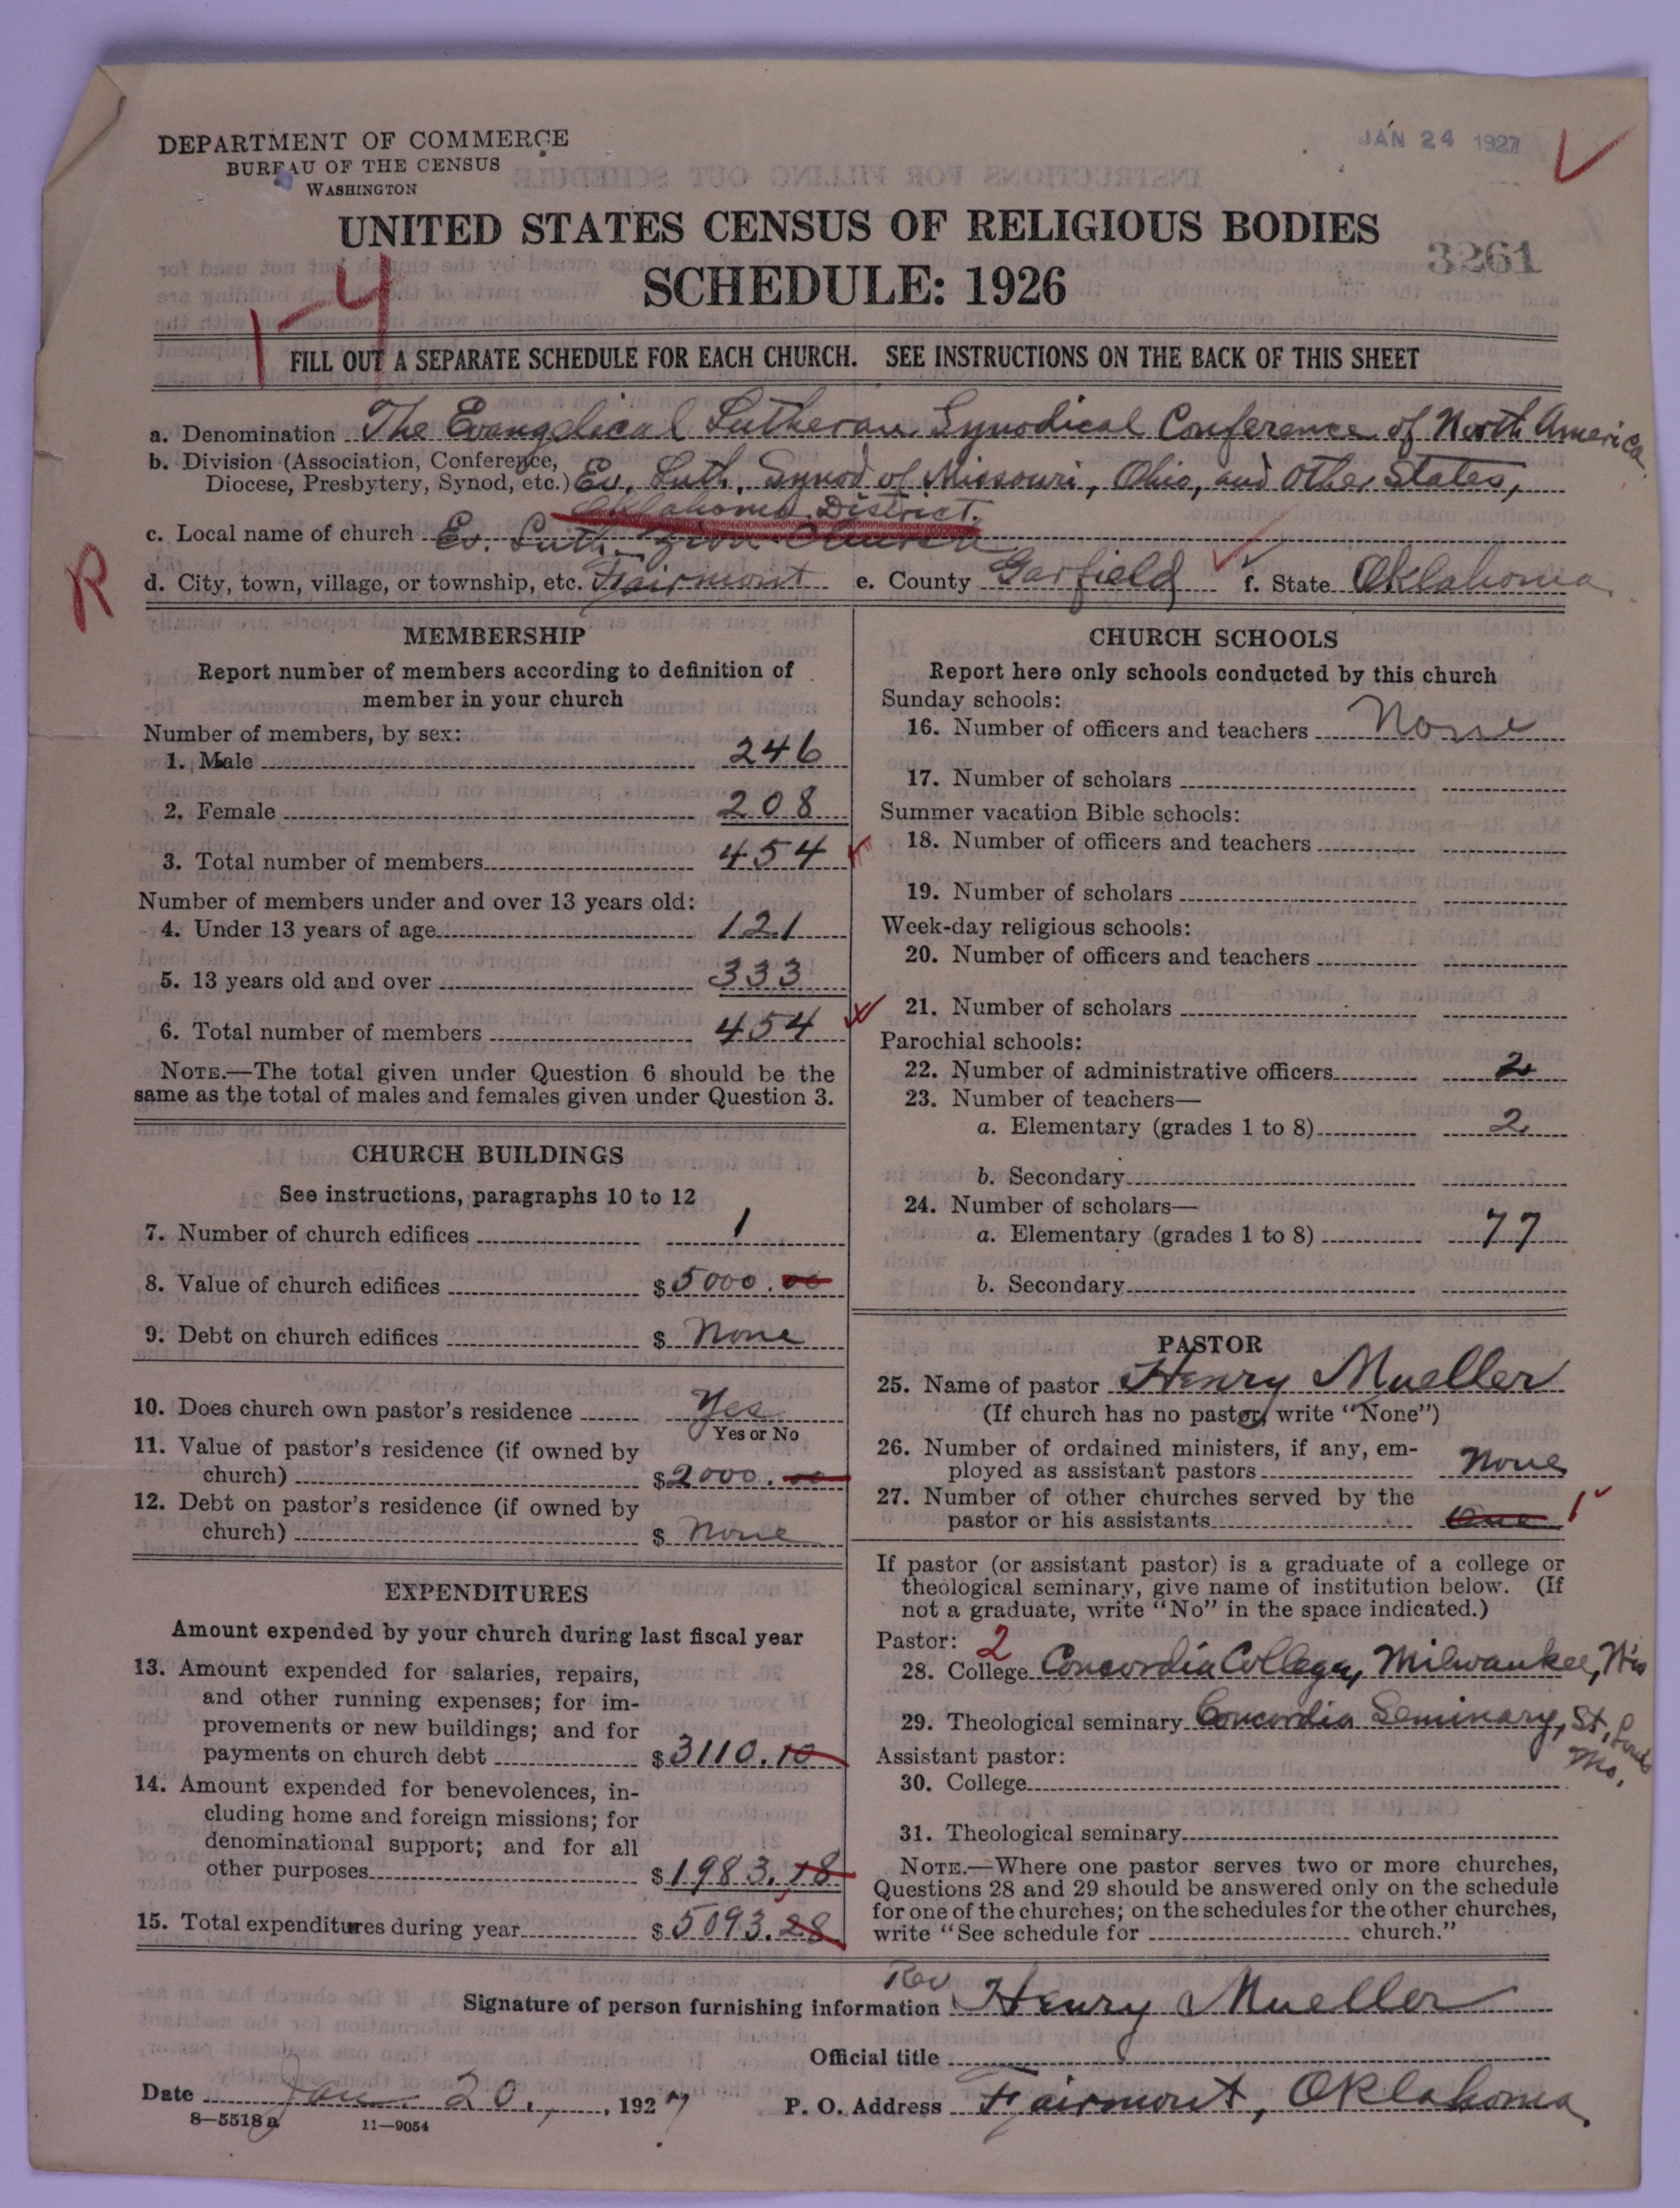 DEPARTMENT OF COMMERCE
BUREAU OF THE CENSUS
WASHINGTON
JAN 24 1927
UNITED STATES CENSUS OF RELIGIOUS BODIES
SCHEDULE: 1926
3261
1-4
FILL OUT A SEPARATE SCHEDULE FOR EACH CHURCH. SEE INSTRUCTIONS ON THE BACK OF THIS SHEET
a. Denomination The Evangelical Lutheran Synodical Conference of North America
b. Division (Association, Conference,
Diocese, Presbytery, Synod, etc.) Ev. Luth. Synod of Missouri, Ohio, and Other States,
Oklahoma District.
c. Local name of church Ev. Luth. Zion Church
R
d. City, town, village, or township, etc. Fairmont e. County Garfield f. State Oklahoma
MEMBERSHIP
Report number of members according to definition of
member in your church
Number of members, by sex:
1. Male 246
2. Female 208
3. Total number of members 454
Number of members under and over 13 years old:
4. Under 13 years of age 121
5. 13 years old and over 333
6. Total number of members 454
NOTE.—The total given under Question 6 should be the
same as the total of males and females given under Question 3.
CHURCH BUILDINGS
See instructions, paragraphs 10 to 12
7. Number of church edifices 1
8. Value of church edifices $5000.00
9. Debt on church edifices $ None
10. Does church own pastor's residence Yes
Yes or No
11. Value of pastor's residence (if owned by
church) $2000.00
12. Debt on pastor's residence (if owned by
church) $ None
EXPENDITURES
Amount expended by your church during last fiscal year
13. Amount expended for salaries, repairs,
and other running expenses; for im-
provements or new buildings; and for
payments on church debt $3110.10
14. Amount expended for benevolences, in-
cluding home and foreign missions; for
denominational support; and for all
other purposes $1983.18
15. Total expenditures during year $5093.28
CHURCH SCHOOLS
Report here only schools conducted by this church
Sunday schools:
16. Number of officers and teachers None
17. Number of scholars
Summer vacation Bible schools:
18. Number of officers and teachers
19. Number of scholars
Week-day religious schools:
20. Number of officers and teachers
21. Number of scholars
Parochial schools:
22. Number of administrative officers 2
23. Number of teachers—
a. Elementary (grades 1 to 8) 2
b. Secondary
24. Number of scholars—
a. Elementary (grades 1 to 8) 77
b. Secondary
PASTOR
25. Name of pastor Henry Mueller
(If church has no pastor, write "None")
26. Number of ordained ministers, if any, em-
ployed as assistant pastors None
27. Number of other churches served by the
pastor or his assistants One 1
If pastor (or assistant pastor) is a graduate of a college or
theological seminary, give name of institution below. (If
not a graduate, write "No" in the space indicated.)
Pastor: 2
28. College Concordia College, Milwaukee, Wis
29. Theological seminary Concordia Seminary, St. Louis
Mo.
Assistant pastor:
30. College
31. Theological seminary
NOTE.—Where one pastor serves two or more churches,
Questions 28 and 29 should be answered only on the schedule
for one of the churches; on the schedules for the other churches,
write "See schedule for church."
Signature of person furnishing information Rev Henry Mueller
Official title
Date Jan. 20, , 1927 P. O. Address Fairmont, Oklahoma
8—5518a 11—9054